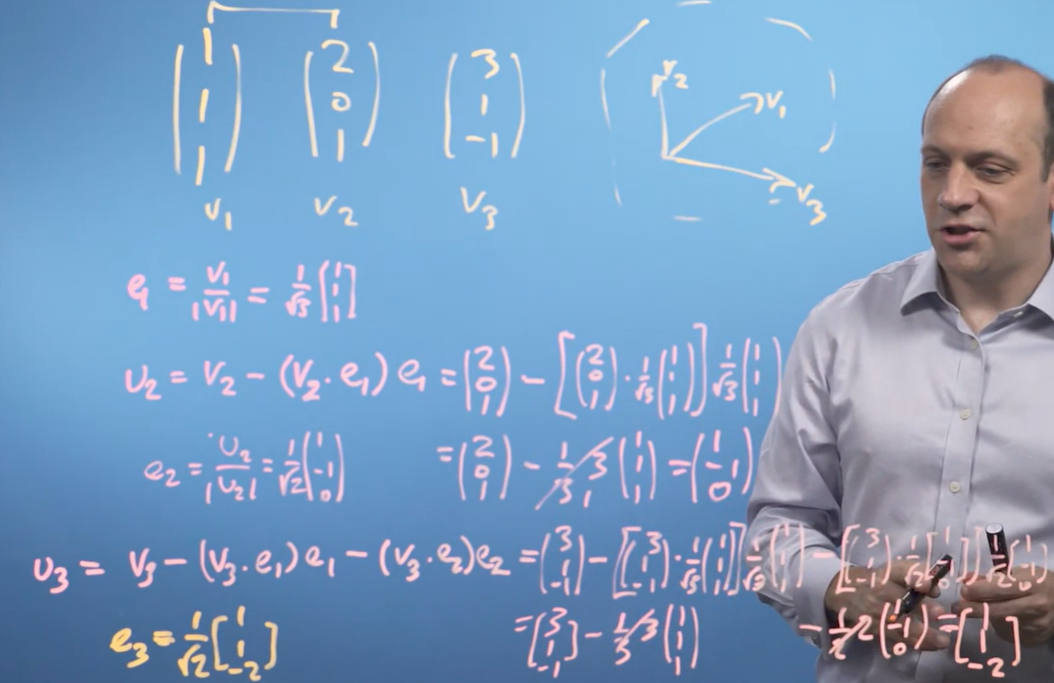 (1 1 1) (2 0 1) (3 1 -1)
v₁ v₂ v₃
v₂ v₁ v₃
e₁ = v₁/|v₁| = 1/√3 [1 1 1]
u₂ = v₂ - (v₂·e₁) e₁ = (2 0 1) - [(2 0 1)·1/√3(1 1 1)] 1/√3 (1 1 1)
e₂ = u₂/|u₂| = 1/√2 (1 -1 0) = (2 0 1) - 1/3 3 (1 1 1) = (1 -1 0)
u₃ = v₃ - (v₃·e₁)e₁ - (v₃·e₂)e₂ = (3 1 -1) - [(3 1 -1)·1/√3(1 1 1)] 1/√3 (1 1 1) - [(3 1 -1)·1/√2(1 -1 0)] 1/√2 (1 -1 0)
e₃ = 1/√2 [1 1 -2] = [3 1 -1] - 1/3 3 (1 1 1) - 1/2 2 (1 -1 0) = [1 1 -2]